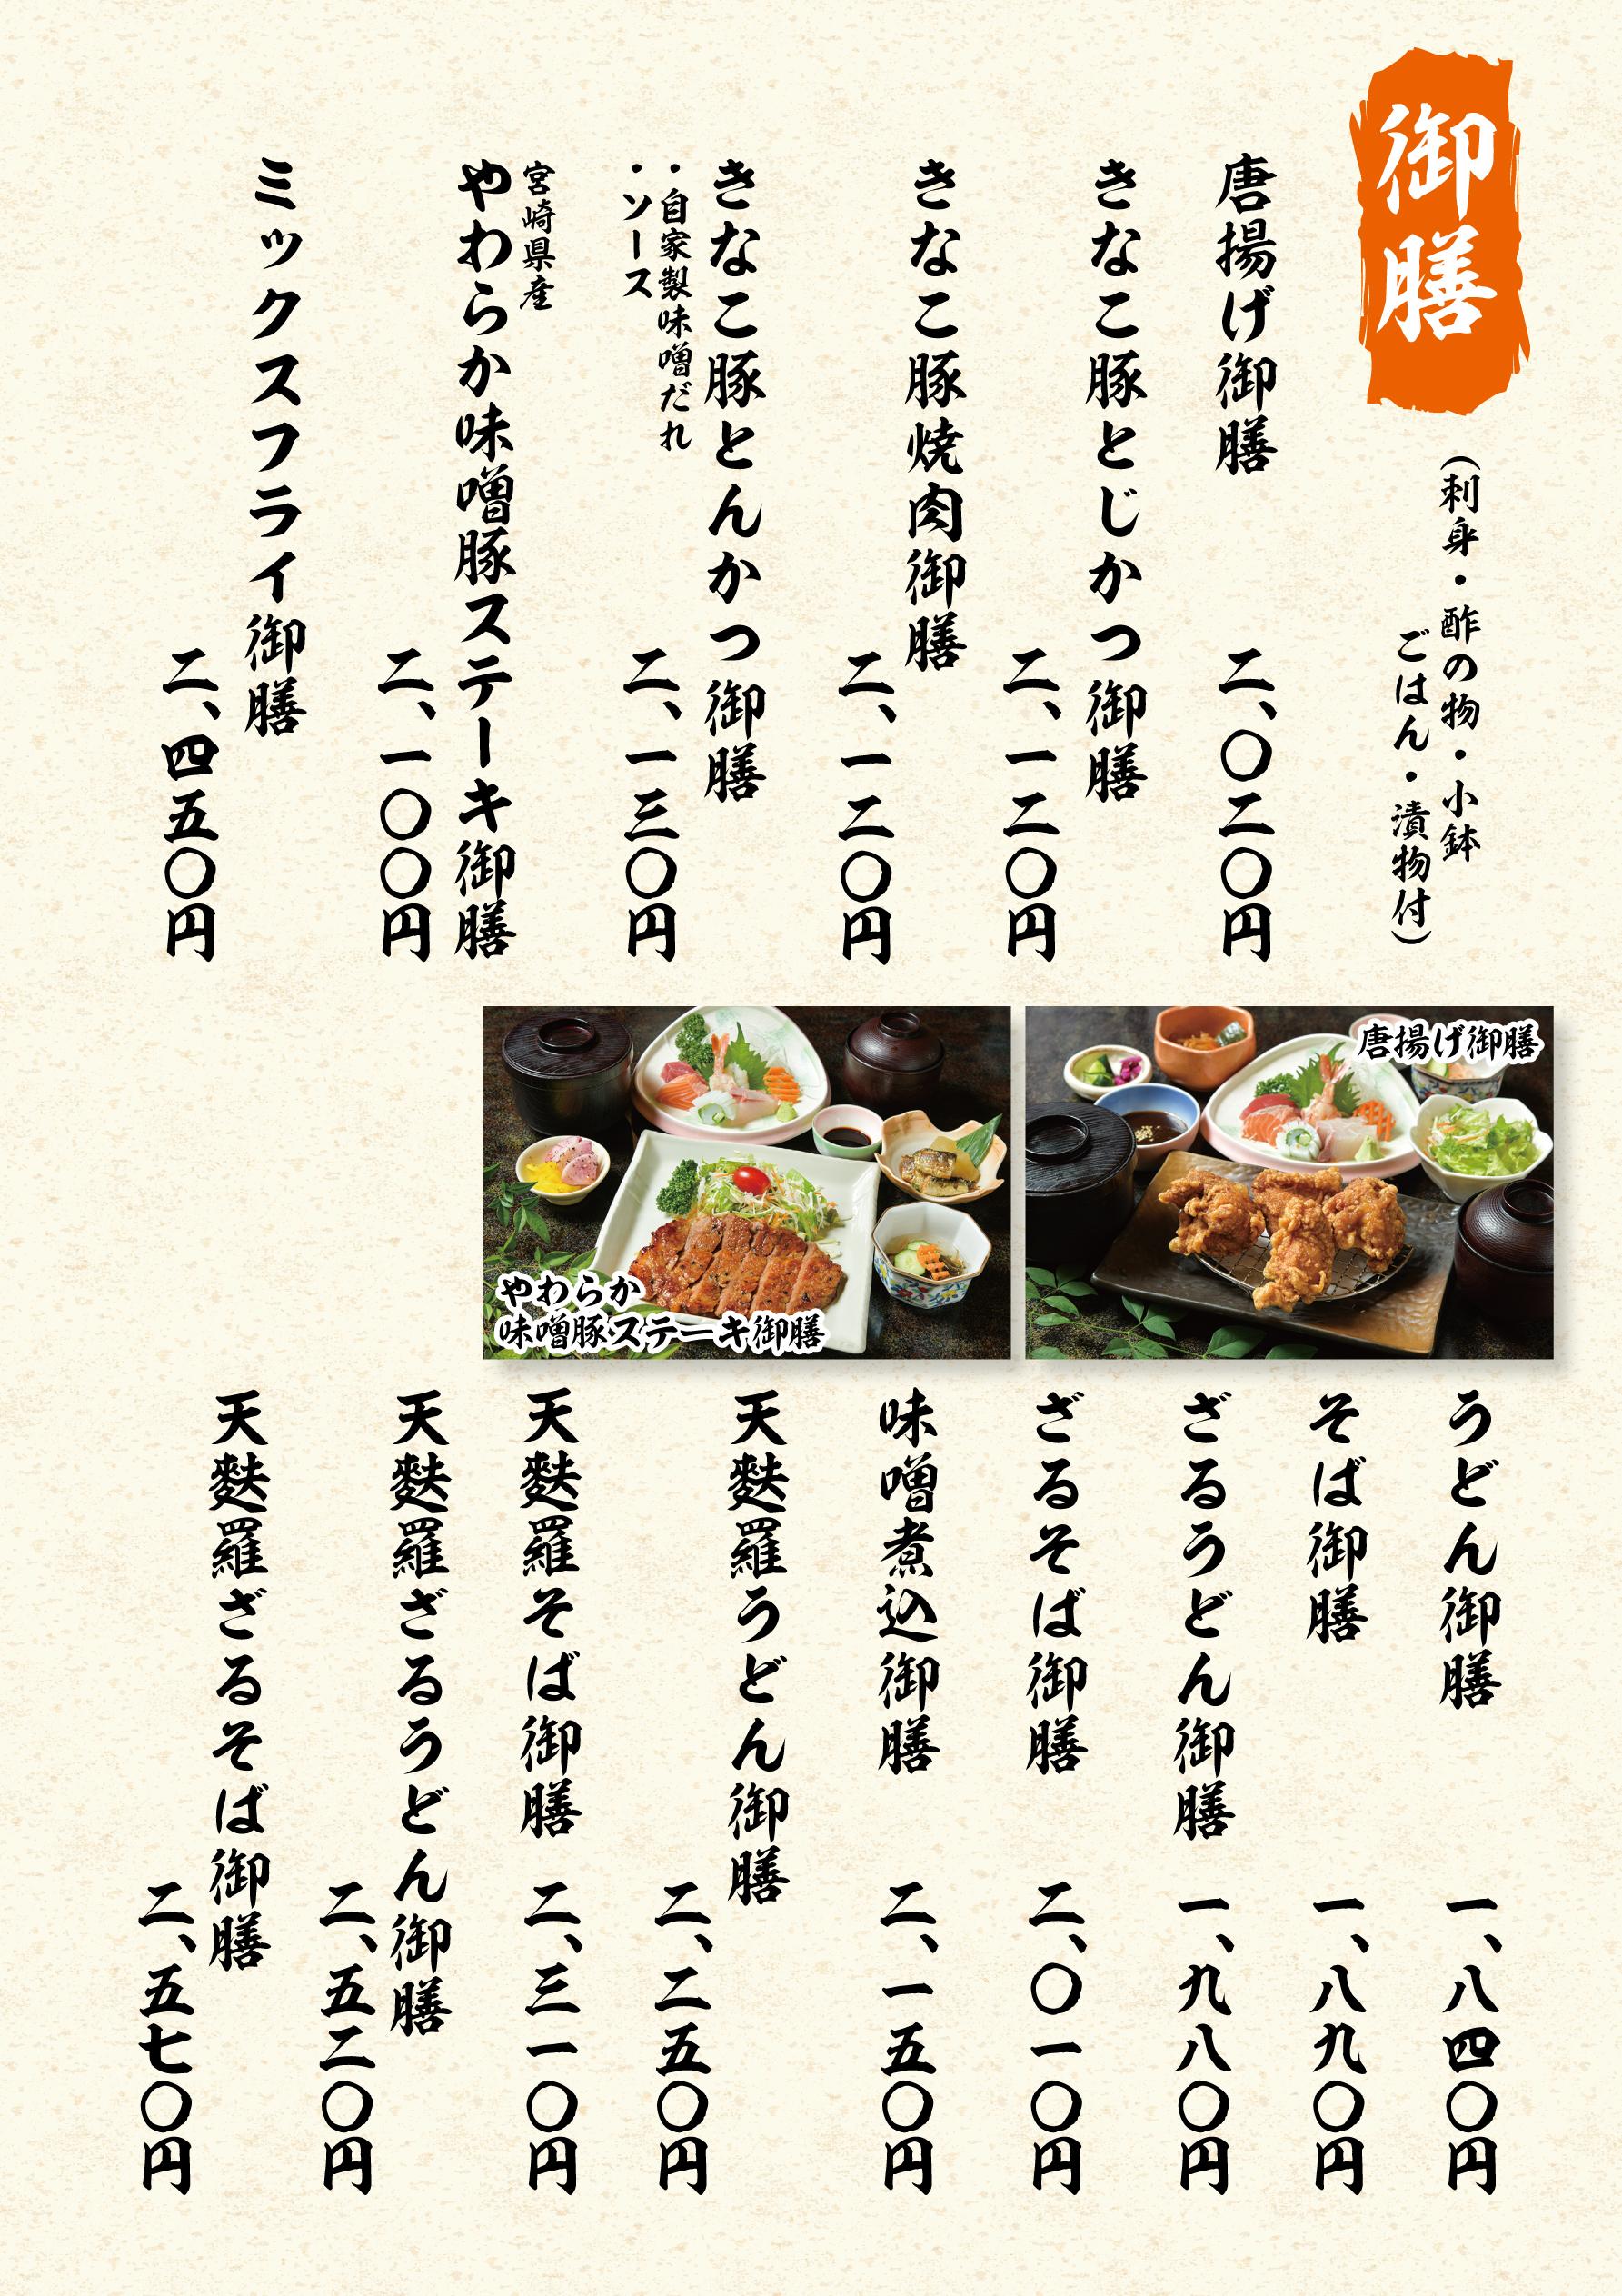 御膳
(刺身・酢の物・小鉢
ごはん・漬物付)
唐揚げ御膳
二、〇二〇円
きなこ豚とじかつ御膳
二、一二〇円
きなこ豚焼肉御膳
二、一二〇円
きなこ豚とんかつ御膳
・自家製味噌だれ
・ソース
二、一三〇円
宮崎県産
やわらか味噌豚ステーキ御膳
二、一〇〇円
ミックスフライ御膳
二、四五〇円
唐揚げ御膳
やわらか
味噌豚ステーキ御膳
うどん御膳
一、八四〇円
そば御膳
一、八九〇円
ざるうどん御膳
一、九八〇円
ざるそば御膳
二、〇一〇円
味噌煮込御膳
二、一五〇円
天麩羅うどん御膳
二、二五〇円
天麩羅そば御膳
二、三一〇円
天麩羅ざるうどん御膳
二、五二〇円
天麩羅ざるそば御膳
二、五七〇円